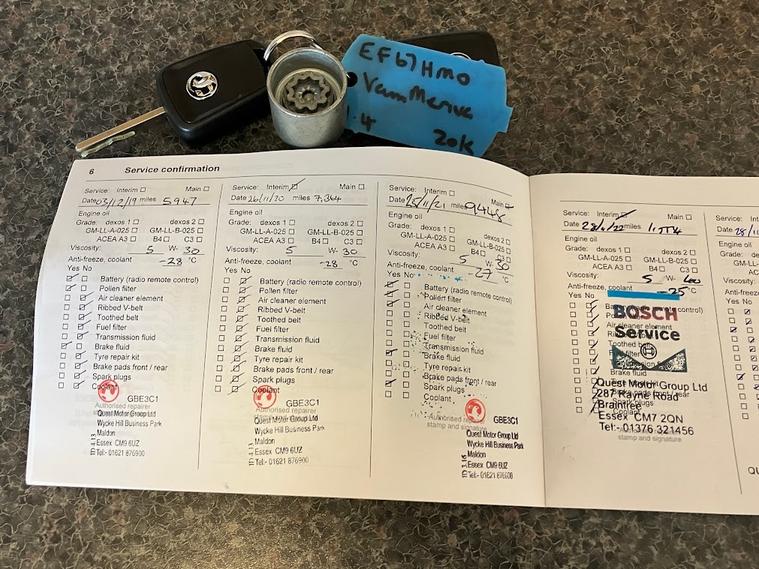 EF67HMO
Vaux Meriva
1.4 20k
6 Service confirmation
Service: Interim Main
Date 03/12/19 miles 5947
Engine oil
Grade: dexos 1 dexos 2
GM-LL-A-025 GM-LL-B-025
ACEA A3 B4 C3
Viscosity: 5 W- 30
Anti-freeze, coolant -28 °C
Yes No
Battery (radio remote control)
Pollen filter
Air cleaner element
Ribbed V-belt
Toothed belt
Fuel filter
Transmission fluid
Brake fluid
Tyre repair kit
Brake pads front / rear
Spark plugs
Coolant
GBE3C1
Authorised repairer
Quest Motor Group Ltd
Wycke Hill Business Park
Maldon
Essex CM9 6UZ
Tel:- 01621 876900
Service: Interim Main
Date 26/11/20 miles 7,364
Engine oil
Grade: dexos 1 dexos 2
GM-LL-A-025 GM-LL-B-025
ACEA A3 B4 C3
Viscosity: 5 W- 30
Anti-freeze, coolant -28 °C
Yes No
Battery (radio remote control)
Pollen filter
Air cleaner element
Ribbed V-belt
Toothed belt
Fuel filter
Transmission fluid
Brake fluid
Tyre repair kit
Brake pads front / rear
Spark plugs
Coolant
GBE3C1
Authorised repairer
Quest Motor Group Ltd
Wycke Hill Business Park
Maldon
Essex CM9 6UZ
Tel:- 01621 876900
Service: Interim Main
Date 25/11/21 miles 9448
Engine oil
Grade: dexos 1 dexos 2
GM-LL-A-025 GM-LL-B-025
ACEA A3 B4 C3
Viscosity: 5 W- 30
Anti-freeze, coolant -27 °C
Yes No
Battery (radio remote control)
Pollen filter
Air cleaner element
Ribbed V-belt
Toothed belt
Fuel filter
Transmission fluid
Brake fluid
Tyre repair kit
Brake pads front / rear
Spark plugs
Coolant
GBE3C1
Authorised repairer
stamp and signature
Quest Motor Group Ltd
Wycke Hill Business Park
Maldon
Essex CM9 6UZ
Tel:- 01621 876900
Service: Interim Main
Date miles
Engine oil
Grade: dexos 1 dexos 2
GM-LL-A-025 GM-LL-B-025
ACEA A3 B4 C3
Viscosity: 5 W-
Anti-freeze, coolant -25 °C
Yes No
BOSCH
Service
Brake fluid
Quest Motor Group Ltd
287 Rayne Road
Braintree
Essex CM7 2QN
Tel:- 01376 321456
stamp and signature
Service:
Date
Engine oil
Grade: